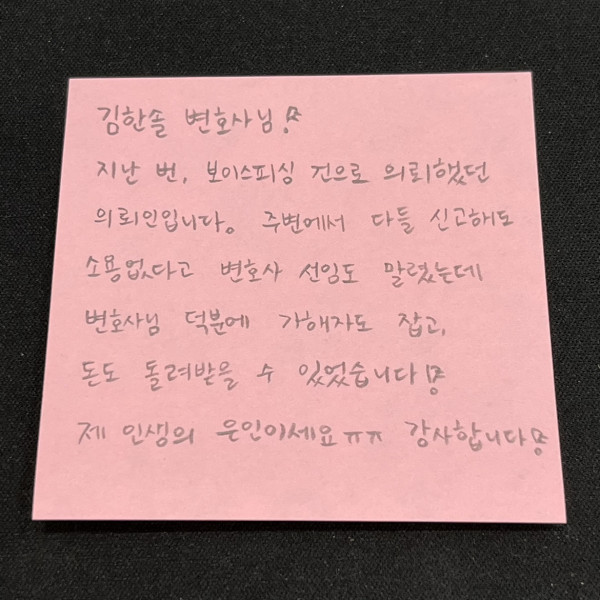 김한솔 변호사님!
지난 번, 보이스피싱 건으로 의뢰했던
의뢰인입니다. 주변에서 다들 신고해도
소용없다고 변호사 선임도 말렸는데
변호사님 덕분에 가해자도 잡고,
돈도 돌려받을 수 있었습니다!
제 인생의 은인이세요ㅠㅠ 감사합니다!